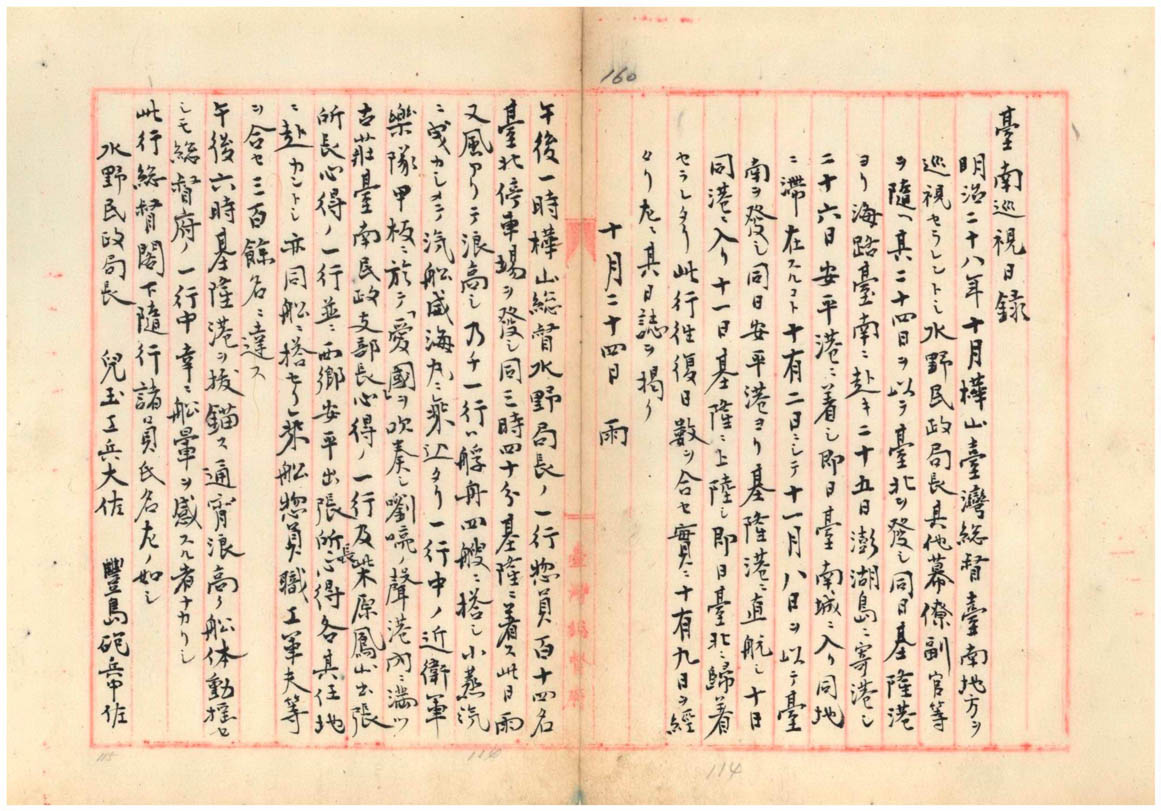 160
臺南巡視日録
明治二十八年十月樺山臺灣総督臺南地方ヲ
巡視セラレントシ水野民政局長其他幕僚副官等
ヲ隨ヘ其二十四日ヲ以テ臺北ヲ發シ同日基隆港
ヨリ海路臺南ニ赴キ二十五日澎湖島ニ寄港シ
二十六日安平港ニ着シ即日臺南城ニ入リ同地
ニ滞在スルコト十有二日ニシテ十一月八日ヲ以テ臺
南ヲ發シ同日安平港ヨリ基隆港ニ直航シ十日
同港ニ入リ十一日基隆ニ上陸シ即日臺北ニ歸着
セラレタリ此行往復日數ヲ合セ實ニ十有九日ヲ經
タリ左ニ其日誌ヲ掲ク
十月二十四日 雨
午後一時樺山総督水野局長ノ一行惣員百十四名
臺北停車場ヲ發シ同三時四十分基隆ニ着ス此日雨
又風アリテ浪高シ乃チ一行ハ艀舟四艘ニ搭シ小蒸汽
ニ曳カシメテ汽船威海丸ニ乘込タリ一行中ノ近衛軍
樂隊甲板ニ於テ「愛國」ヲ吹奏シ劉喨ノ聲港内ニ満ツ
古莊臺南民政支部長心得ノ一行及柴原鳳山出張
所長心得ノ一行並ニ西郷安平出張所長心得各其任地
ニ赴カントシ亦同船ニ搭セリ乘船惣員職工軍夫等
ヲ合セ三百餘名ニ達ス
午後六時基隆港ヲ拔錨ス通宵浪高ク船体動揺
シモ総督府ノ一行中幸ニ船暈ヲ感スル者ナカリシ
此行総督閣下隨行諸員氏名左ノ如シ
水野民政局長 兒玉工兵大佐 豐島砲兵中佐
臺灣総督府
114
114
115